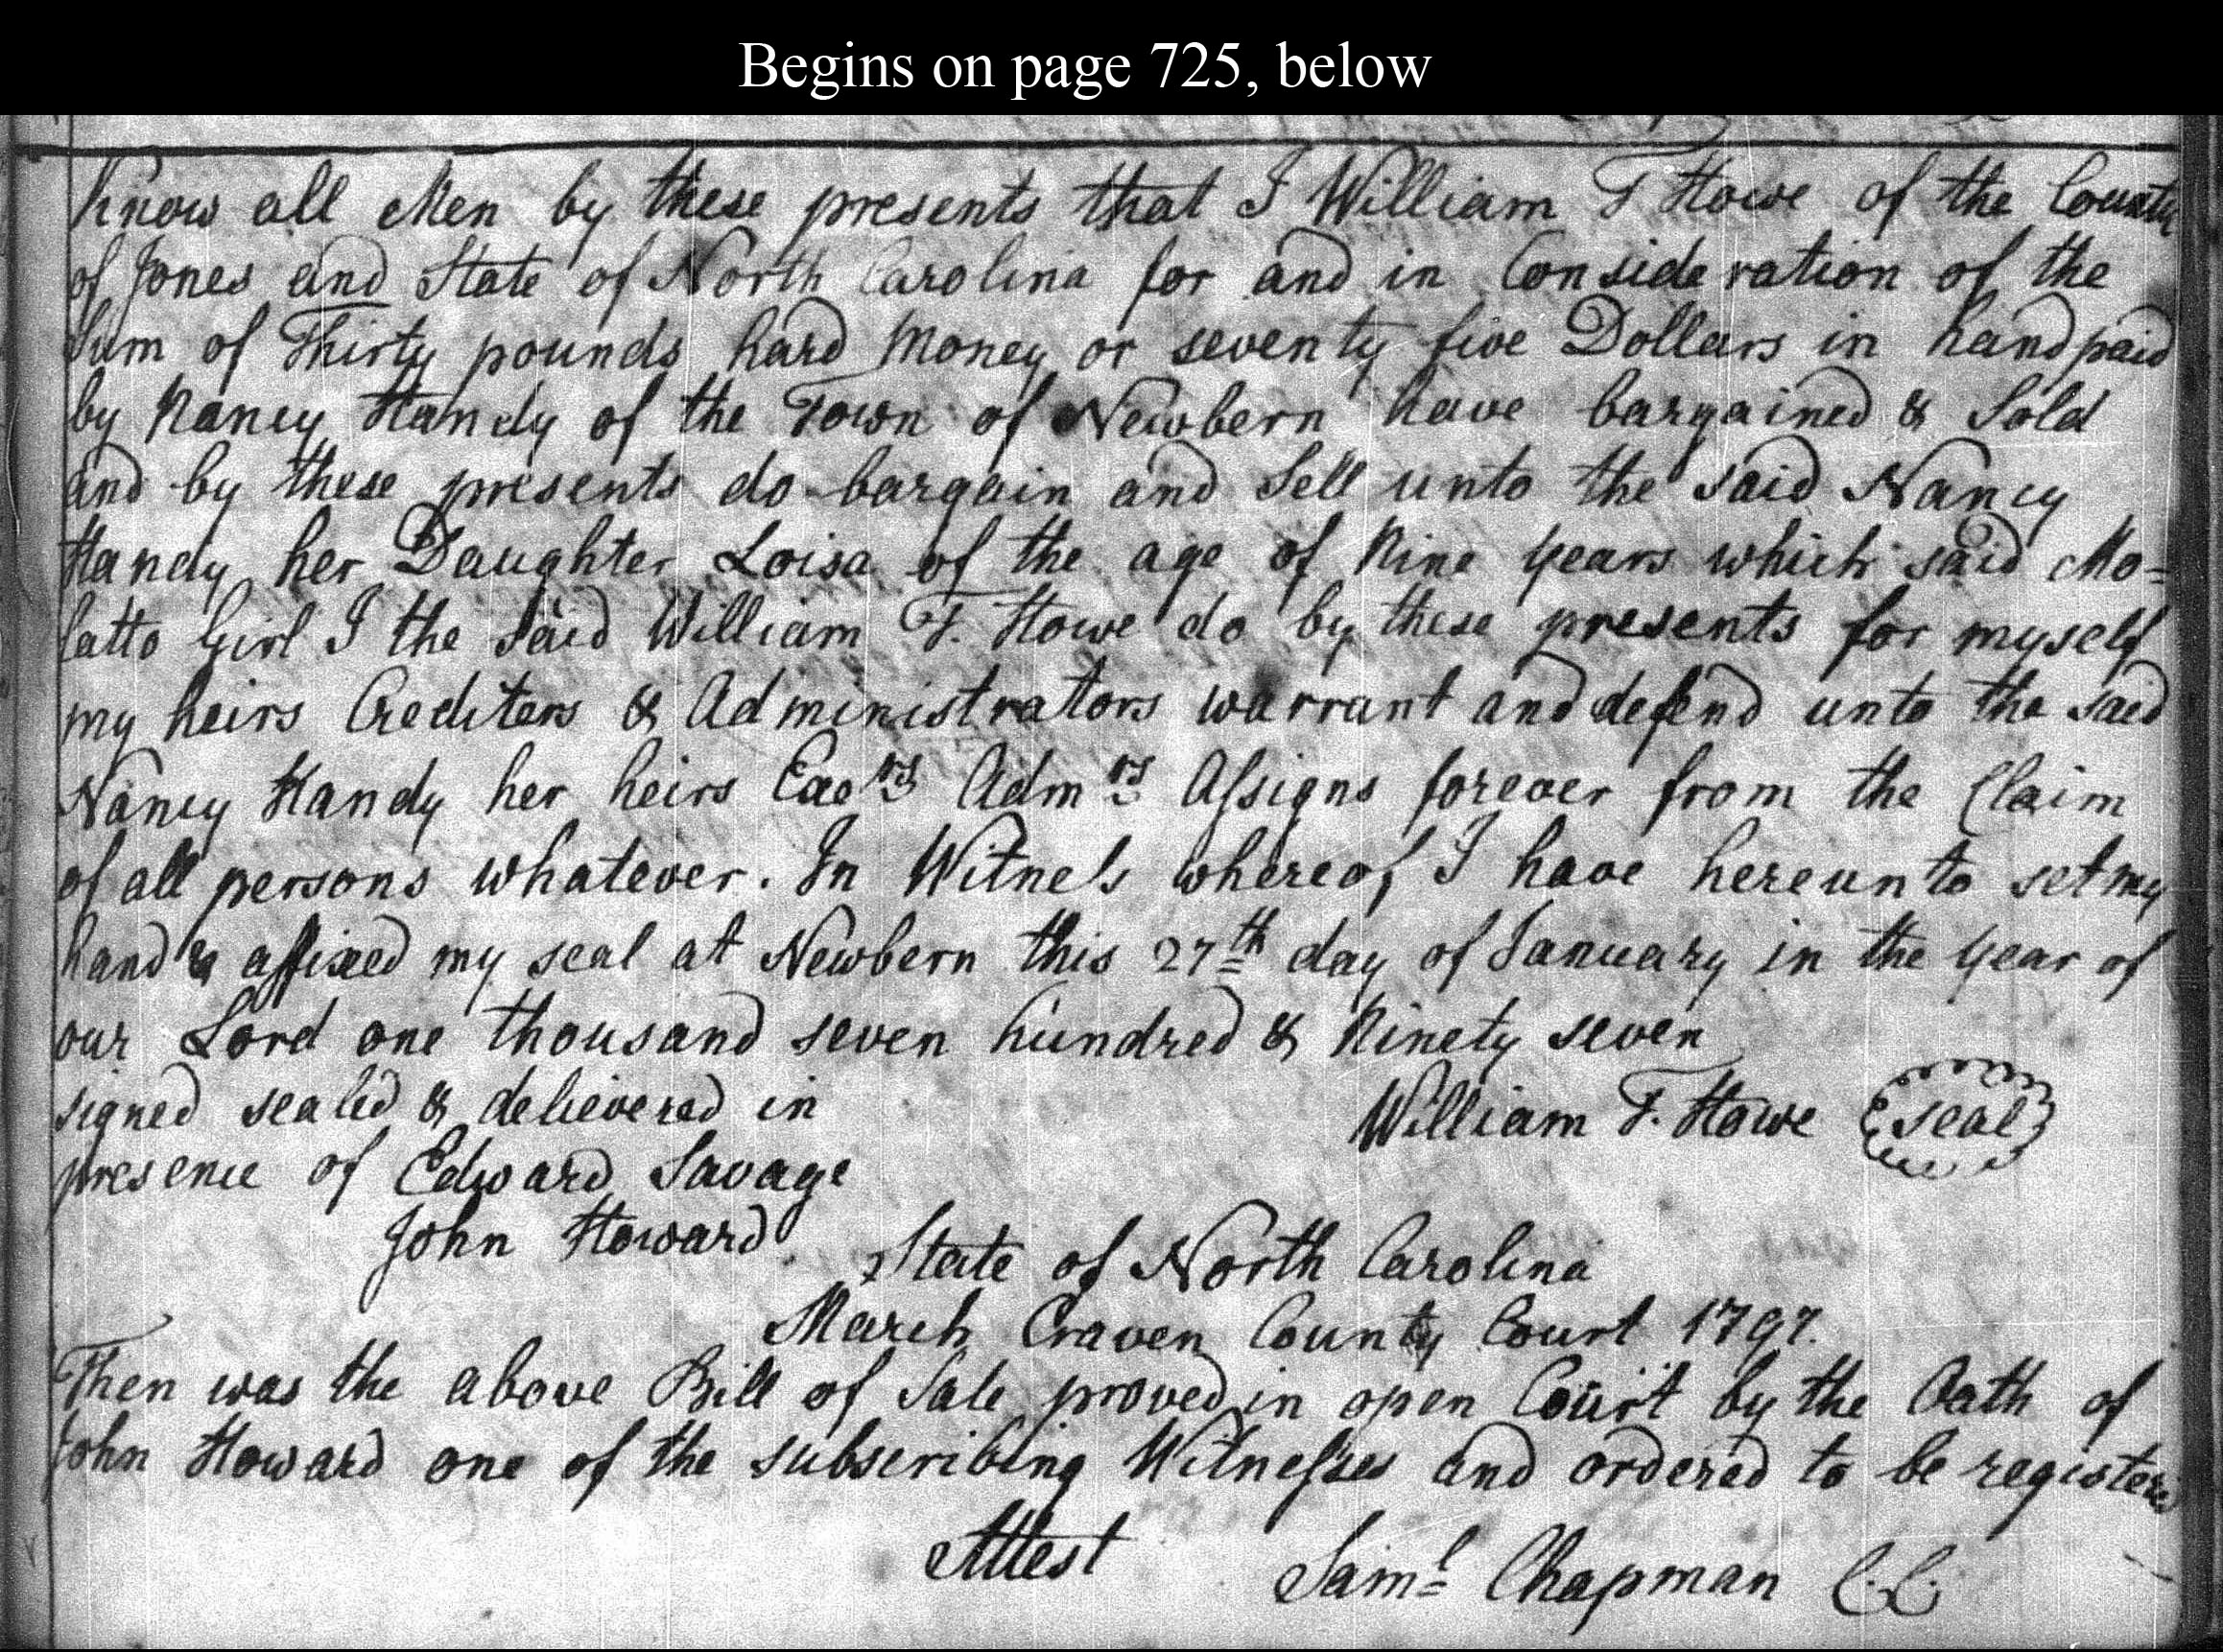 Begins on page 725, below
Know all Men by these presents that I William F Howe of the County
of Jones and State of North Carolina for and in Consideration of the
Sum of Thirty pounds hard Money or seventy five Dollars in hand paid
by Nancy Handy of the Town of Newbern have bargained & Sold
and by these presents do bargain and Sell unto the said Nancy
Handy her Daughter Loisa of the age of Nine Years which said Mo=
latto Girl I the Said William F. Howe do by these presents for myself
my heirs Crediters & Administrators warrant and defend unto the said
Nancy Handy her heirs Exe.rs Adm.rs Assigns forever from the Claim
of all persons whatever. In Witness whereof I have hereunto set my
hand & affixed my seal at Newbern this 27th day of January in the Year of
our Lord one thousand seven hundred & Ninety seven
signed sealed & delievered in
William F. Howe seal
presence of Edward Savage
John Howard
State of North Carolina
March Craven County Court 1797.
Then was the above Bill of Sale proved in open Court by the Oath of
John Howard one of the subscribing Witnesses and ordered to be registered
Attest Saml Chapman C.C.